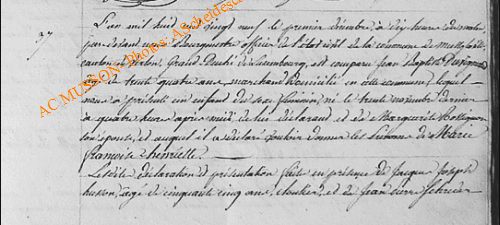 37
L'an mil huit cent vingt neuf le premier décembre, à dix heures du matin
par devant nous Bourguotte officier de l'état civil de la commune de Musson
canton de Grand Duché de Luxembourg, est comparu Jean Baptiste
agé de trente quatre ans, marchand domicilié en cette commune, lequel
nous a présenté un enfant du sexe féminin, né le trente novembre dernier
à quatre heures après midi de lui déclarant, et de Marguerite
son épouse, et auquel il a déclaré vouloir donner les prénoms de Marie
françoise henriette.
Lesdites déclaration et présentation faite en présence de Jacques Joseph
husson, agé de cinquante cinq ans, et de Jean pierre
AC MUSSON-Photos: Ascheidesch